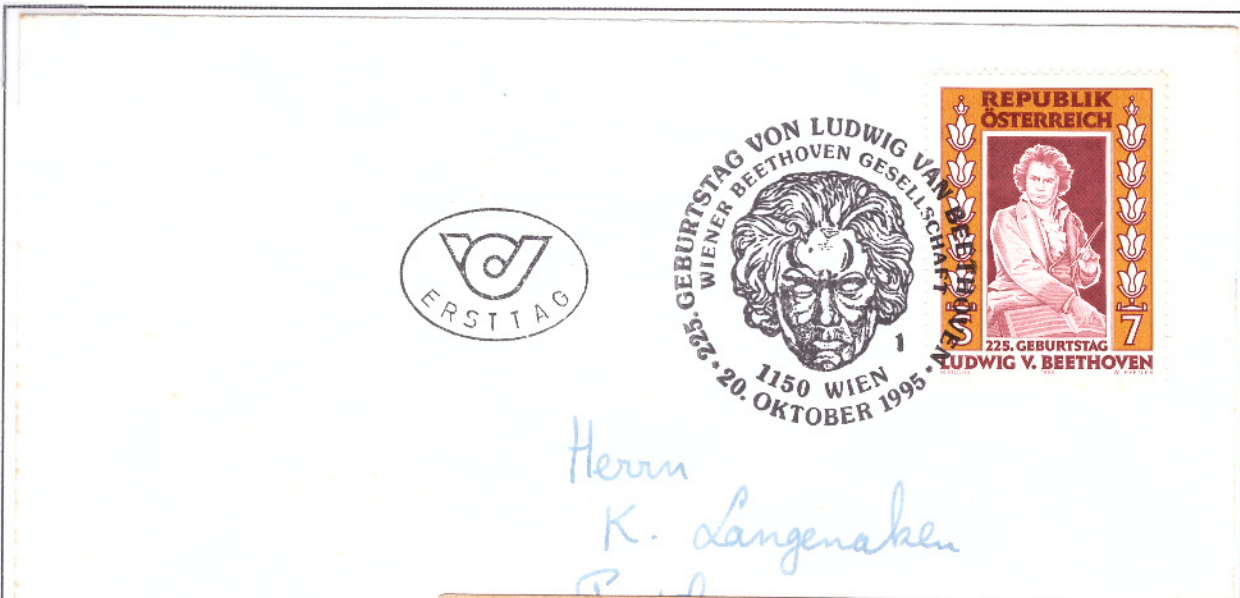 ERSTTAG
225. GEBURTSTAG VON LUDWIG VAN BEETHOVEN
WIENER BEETHOVEN GESELLSCHAFT
1
1150 WIEN
• 20. OKTOBER 1995 •
REPUBLIK
ÖSTERREICH
S 7
225. GEBURTSTAG
LUDWIG V. BEETHOVEN
Herrn
K. Langenaken